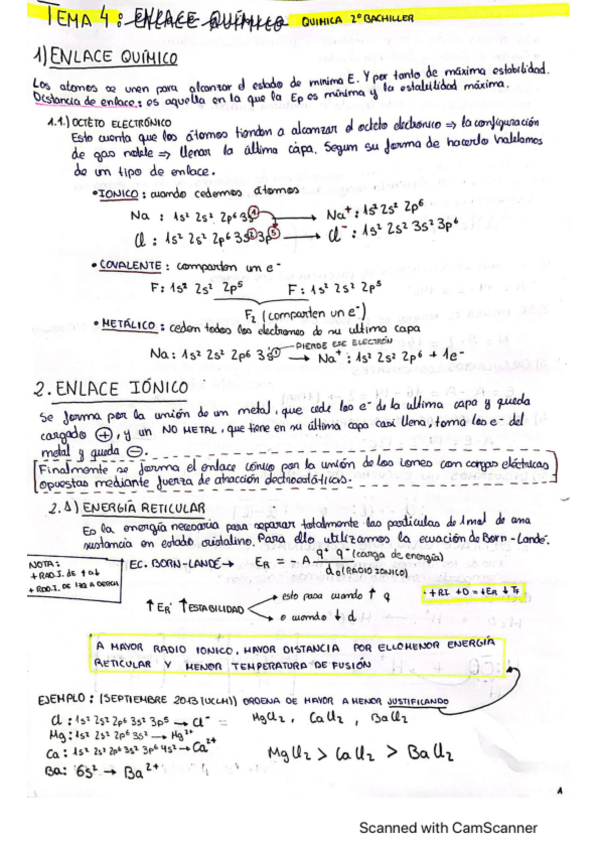 TEMA 4: ENLACE QUÍMICO QUIMICA 2º BACHILLER
1) ENLACE QUÍMICO
Los atomos se unen para alcanzar el estado de minima E. Y por tanto de máxima estabilidad.
Distancia de enlace: es aquella en la que la Ep es mínima y la estabilidad máxima.
1.1.) OCTETO ELECTRÓNICO
Esto cuenta que los átomos tienden a alcanzar el octeto electronico => la configuración
de gas noble => llenar la última cápa. Segun su forma de hacerlo hablamos
de un tipo de enlace.
• IONICO: cuando cedemos átomos
Na : 1s² 2s² 2p⁶ 3s① → Na⁺: 1s² 2s² 2p⁶
Cl : 1s² 2s² 2p⁶ 3s② 3p⑤ → Cl⁻: 1s² 2s² 3s² 3p⁶
• COVALENTE: comparten un e⁻
F: 1s² 2s² 2p⁵ F: 1s² 2s² 2p⁵
F₂ (comparten un e⁻)
• METÁLICO: ceden todos los electrones de su ultima capa
PIERDE ESE ELECTRÓN
Na: 1s² 2s² 2p⁶ 3s① → Na⁺: 1s² 2s² 2p⁶ + 1e⁻
2. ENLACE IÓNICO
Se forma por la unión de un metal, que cede los e⁻ de la ultima capa y queda
cargado ⊕, y un NO METAL, que tiene en su última capa casi llena, toma los e⁻ del
metal y queda ⊖.
Finalmente se forma el enlace iónico por la unión de los iones con cargas eléctricas
opuestas mediante fuerza de atracción electroestáticas.
2.1) ENERGÍA RETICULAR
Es la energía necesaria para separar totalmente las partículas de 1 mol de una
sustancia en estado cristalino. Para ello utilizamos la ecuación de Born-Landé.
NOTA:
+ RAD. I. DE ↑ a ↓
+ RAD. I. DE IZQ A DERCH
EC. BORN-LANDÉ → ER = - A q⁺ q⁻ (carga de energía)
d₀ (RADIO IONICO)
↑ ER ↑ ESTABILIDAD
esto pasa cuando ↑ q
o cuando ↓ d
· + RI + D = ↓ ER ↓ TF
A MAYOR RADIO IONICO, MAYOR DISTANCIA POR ELLO MENOR ENERGÍA
RETICULAR Y MENOR TEMPERATURA DE FUSIÓN
EJEMPLO: (SEPTIEMBRE 2013 (UCLM)) ORDENA DE MAYOR A MENOR JUSTIFICANDO
Cl: 1s² 2s² 2p⁶ 3s² 3p⁵ → Cl⁻ = MgCl₂, CaCl₂, BaCl₂
Mg: 1s² 2s² 2p⁶ 3s² → Mg²⁺
Ca: 1s² 2s² 2p⁶ 3s² 3p⁶ 4s² → Ca²⁺
MgCl₂ > CaCl₂ > BaCl₂
Ba: 6s² → Ba²⁺
Scanned with CamScanner